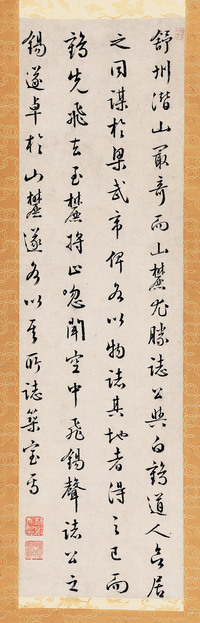 舒州潛山最奇而山麓尤勝誌公與白鶴道人欲居
之同謀於梁武帝俾各以物誌其地者得之已而
鶴先飛去至麓將止忽聞空中飛錫聲誌公之
錫遂卓於山麓遂各以所誌築室焉